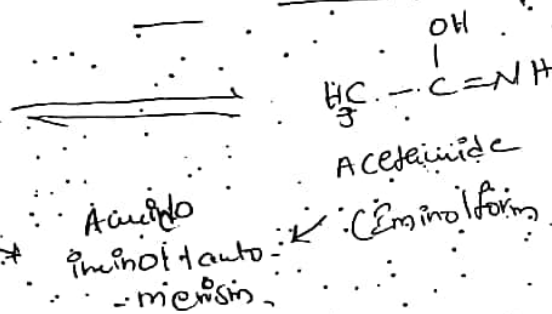 OH
H3C - C = NH
Acetamide
(Iminol form
Amido
iminol tauto-
-merism.